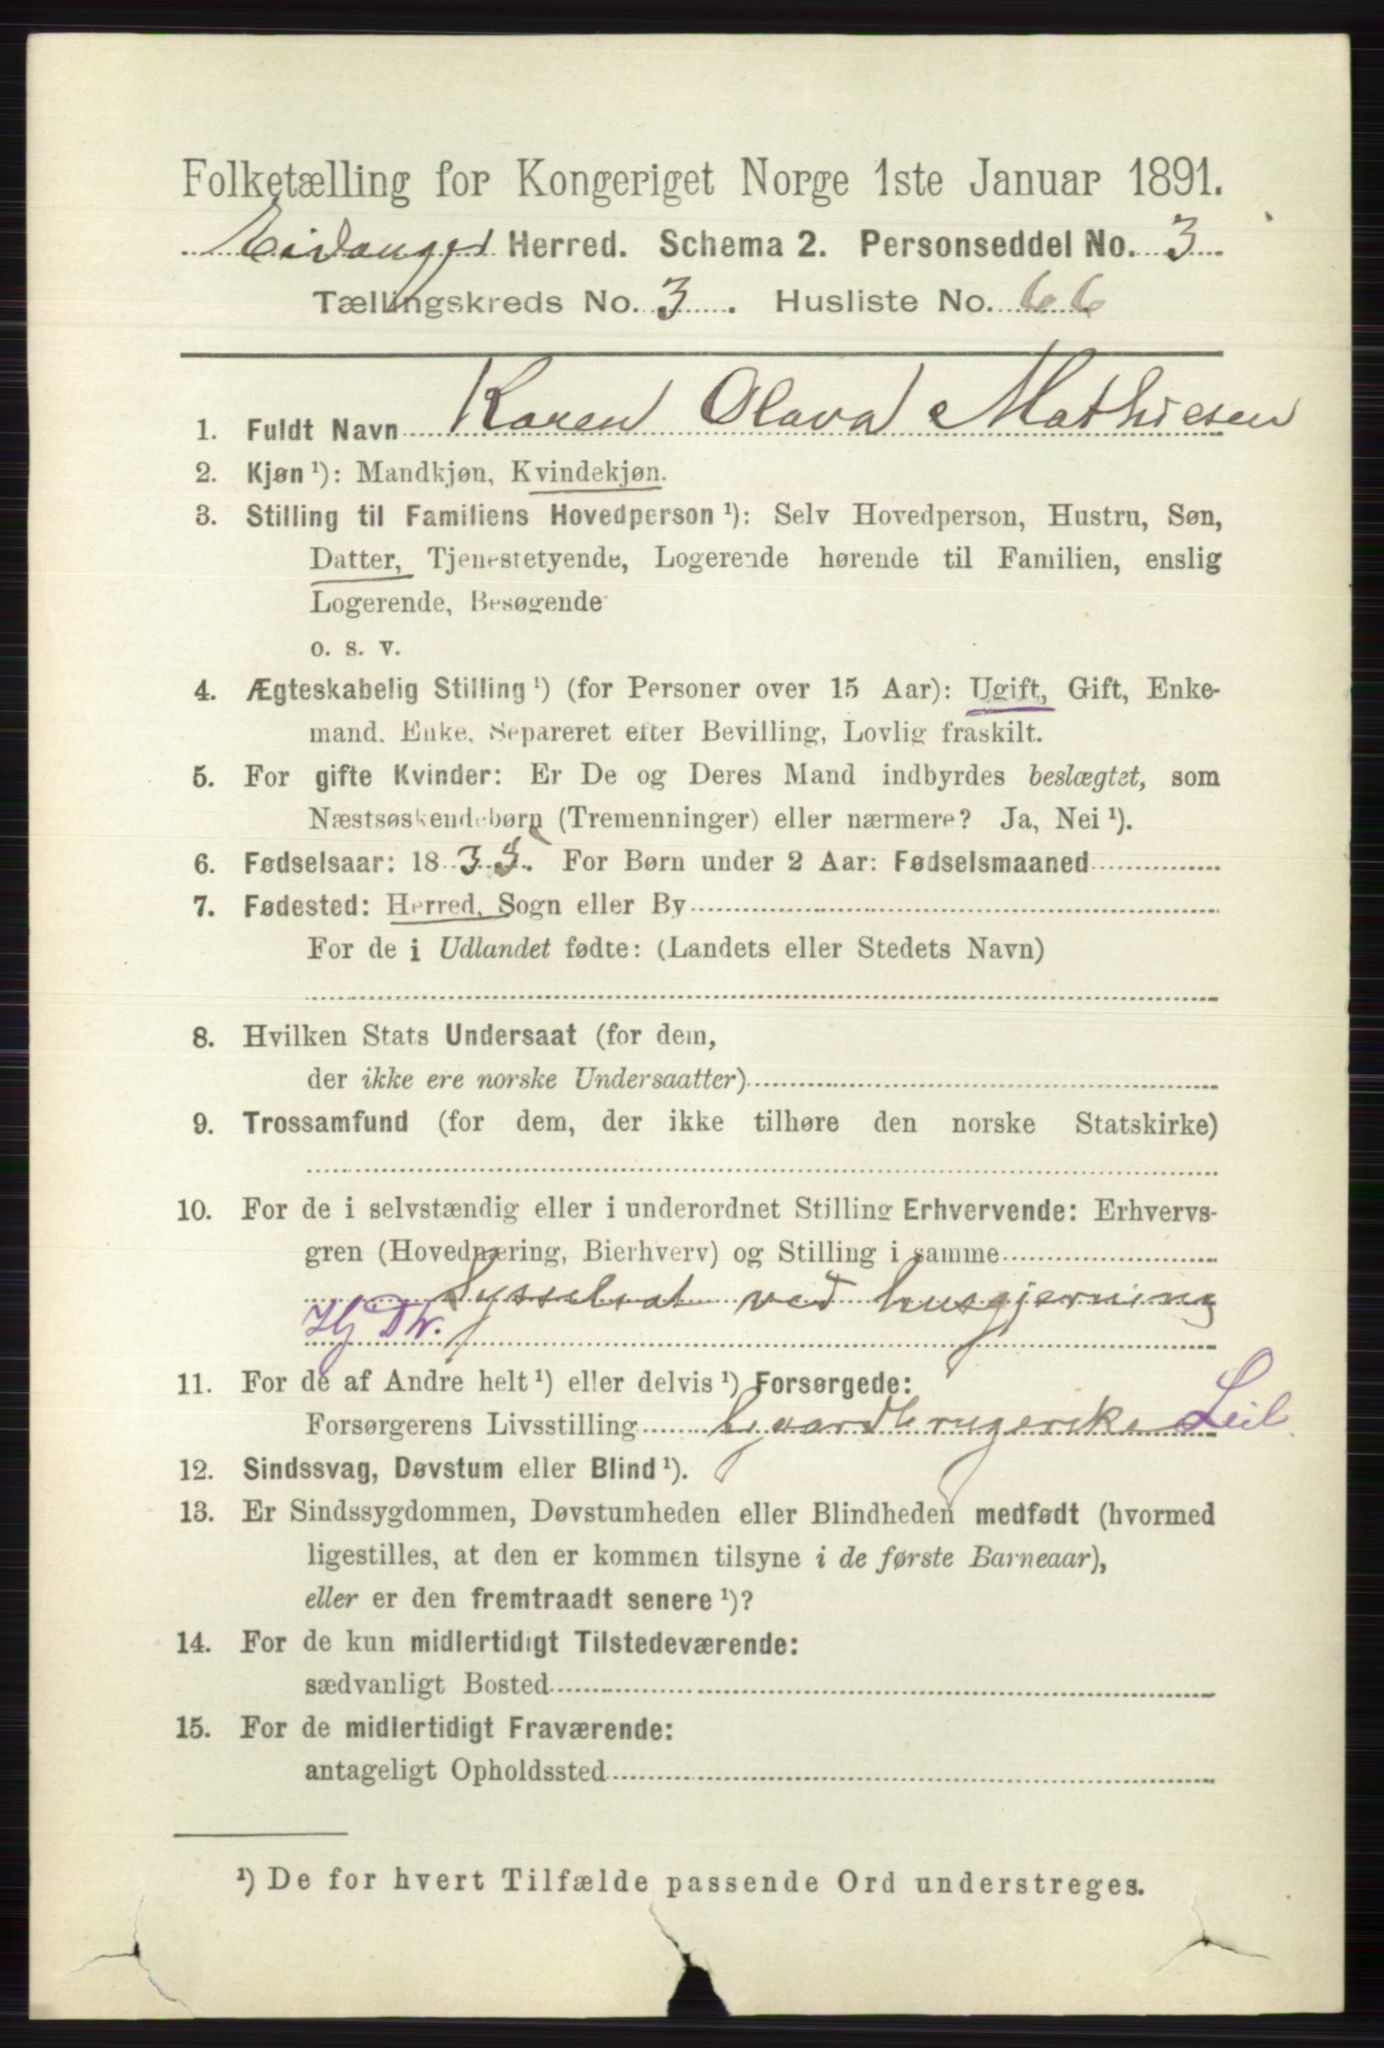 Folketælling for Kongeriget Norge 1ste Januar 1891.
Eidanger Herred. Schema 2. Personseddel No. 3
Tællingskreds No. 3. Husliste No. 66
1. Fuldt Navn Karen Olava Mathiesen
2. Kjøn ¹): Mandkjøn, Kvindekjøn.
3. Stilling til Familiens Hovedperson ¹): Selv Hovedperson, Hustru, Søn,
Datter, Tjenestetyende, Logerende hørende til Familien, enslig
Logerende, Besøgende
o. s. v.
4. Ægteskabelig Stilling ¹) (for Personer over 15 Aar): Ugift, Gift, Enke-
mand, Enke, Separeret efter Bevilling, Lovlig fraskilt.
5. For gifte Kvinder: Er De og Deres Mand indbyrdes beslægtet, som
Næstsøskendebørn (Tremenninger) eller nærmere? Ja, Nei ¹).
6. Fødselsaar: 1835. For Børn under 2 Aar: Fødselsmaaned
7. Fødested: Herred, Sogn eller By
For de i Udlandet fødte: (Landets eller Stedets Navn)
8. Hvilken Stats Undersaat (for dem,
der ikke ere norske Undersaatter)
9. Trossamfund (for dem, der ikke tilhøre den norske Statskirke)
10. For de i selvstændig eller i underordnet Stilling Erhvervende: Erhvervs-
gren (Hovednæring, Bierhverv) og Stilling i samme
Sysselsat ved husgjerning
Hj Dtr.
11. For de af Andre helt ¹) eller delvis ¹) Forsørgede:
Forsørgerens Livsstilling Gaardbrugerske Leil.
12. Sindssvag, Døvstum eller Blind ¹).
13. Er Sindssygdommen, Døvstumheden eller Blindheden medfødt (hvormed
ligestilles, at den er kommen tilsyne i de første Barneaar),
eller er den fremtraadt senere ¹)?
14. For de kun midlertidigt Tilstedeværende:
sædvanligt Bosted
15. For de midlertidigt Fraværende:
antageligt Opholdssted
¹) De for hvert Tilfælde passende Ord understreges.